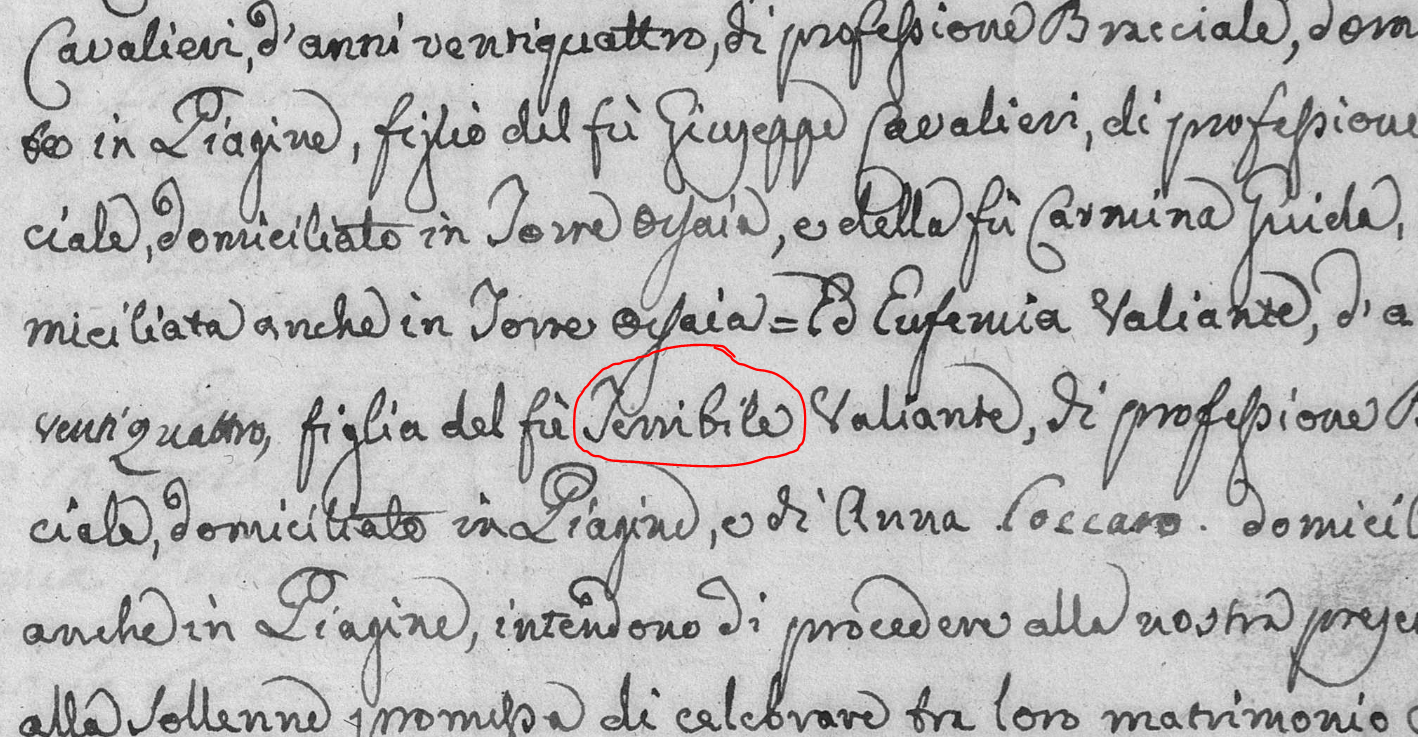 Cavalieri, d'anni ventiquattro, di professione Bracciale, dom
to in Piagine, figlio del fù Giuseppe Cavalieri, di professione
ciale, domiciliato in Torre Orsaia, e della fù Carmina Guida,
miciliata anche in Torre Orsaia = Ed Eufemia Valiante, d'a
ventiquattro, figlia del fù Terribile Valiante, di professione B
ciale, domiciliato in Piagine, e di Anna Coccaro. domicil
anche in Piagine, intendono di procedere alla nostra prese
alla sollenne promessa di celebrare tra loro matrimonio